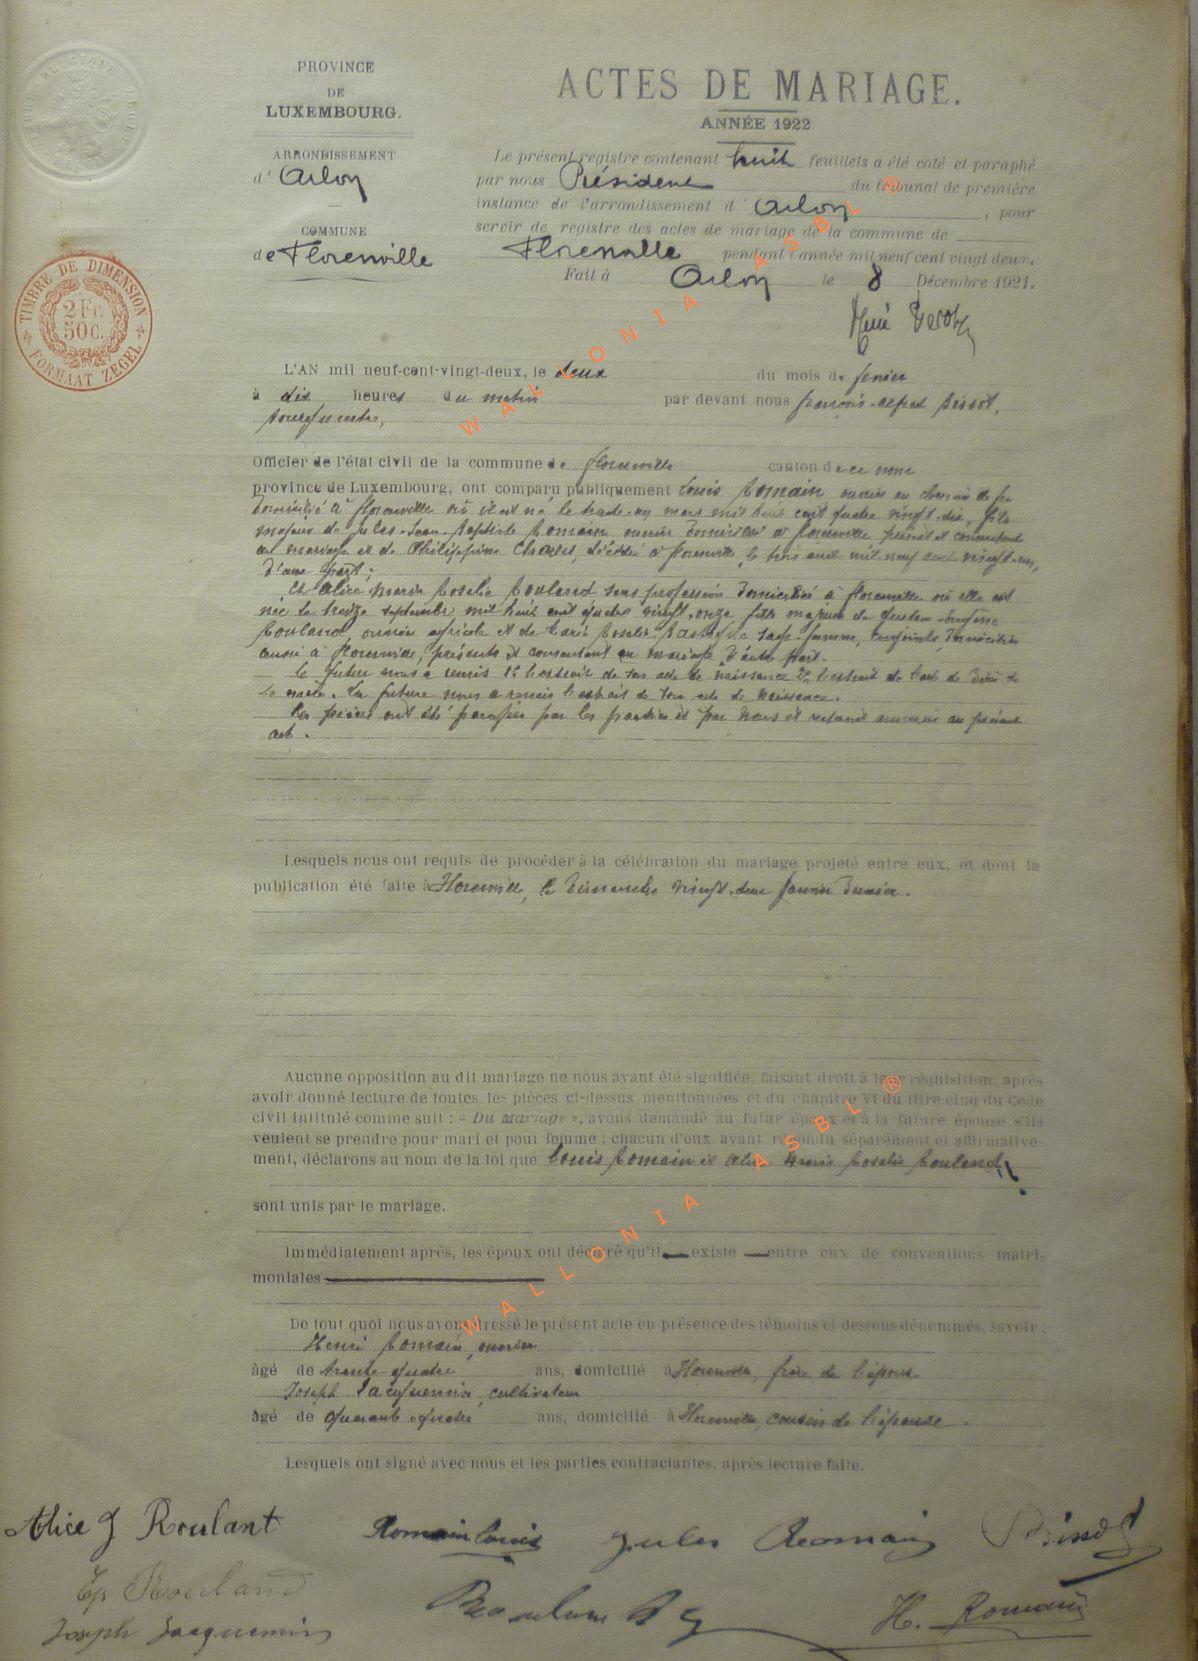 PROVINCE
DE
LUXEMBOURG.
ARRONDISSEMENT
d' Arlon
COMMUNE
de Florenville
TIMBRE DE DIMENSION
2 Fr.
50 c.
FORMAAT ZEGEL
ACTES DE MARIAGE.
ANNÉE 1922
Le présent registre contenant huit feuillets a été coté et paraphé
par nous Président du tribunal de première
instance de l'arrondissement d' Arlon, pour
servir de registre des actes de mariage de la commune de
Florenville pendant l'année mil neuf cent vingt deux.
Fait à Arlon le 8 Décembre 1921.
L'AN mil neuf-cent-vingt-deux, le deux du mois de fevrier
à dix heures du matin par devant nous François-Alfred Brisot,
bourgmestre,
Officier de l'état civil de la commune de Florenville canton de ce nom
province de Luxembourg, ont comparu publiquement Louis Romain, ouvrier au chemin de fer
domicilié à Florenville où il est né le trente-un mars mil huit cent quatre vingt-dix, fils
majeur de Jules-Jean-Baptiste Romain, ouvrier domicilié à Florenville présent et consentant
au mariage et de Philippine Charles, décédée à Florenville, le trois avril mil neuf cent vingt-un,
d'une part;
Et Alice Maria Rosalie Rouland sans profession domiciliée à Florenville où elle est
née le treize septembre mil huit cent quatre vingt-onze, fille majeure de Gustave-Eugène
Rouland, ouvrier agricole et de Marie Rosalie sage-femme, conjoints, domiciliés
aussi à Florenville, présents et consentant au mariage, d'autre part.
Le futur nous a remis 1° l'extrait de son acte de naissance 2° l'extrait de l'acte de décès de
sa mère. La future nous a remis l'extrait de son acte de naissance.
Ces pièces ont été paraphées par les parties et par nous et resteront annexées au présent
acte.
Lesquels nous ont requis de procéder à la célébration du mariage projeté entre eux, et dont la
publication été faite à Florenville, le dimanche vingt-deux janvier dernier.
Aucune opposition au dit mariage ne nous ayant été signifiée, faisant droit à leur réquisition, après
avoir donné lecture de toutes les pièces ci-dessus mentionnées et du chapitre VI du titre cinq du Code
civil intitulé comme suit : « Du Mariage », avons demandé au futur époux et à la future épouse s'ils
veulent se prendre pour mari et pour femme ; chacun d'eux ayant répondu séparément et affirmative-
ment, déclarons au nom de la loi que Louis Romain et Alice Maria Rosalie Rouland,
sont unis par le mariage.
Immédiatement après, les époux ont déclaré qu'il existe entre eux de conventions matri-
moniales
De tout quoi nous avons dressé le présent acte en présence des témoins ci-dessous dénommés, savoir :
Henri Romain, ouvrier
âgé de trente quatre ans, domicilié à Florenville, frère de l'époux
Joseph Jacquemin, cultivateur
âgé de quarante-quatre ans, domicilié à Florenville, cousin de l'épouse.
Lesquels ont signé avec nous et les parties contractantes, après lecture faite.
Alice J Roulant Romain Louis Jules Romain Brisot
Ep Rouland
Joseph Jacquemin H. Romain
WALLONIA ASBL ®
WALLONIA ASBL ®